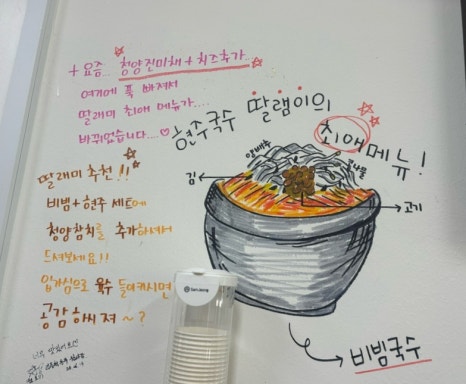 + 요즘.. 청양진미채 + 치즈추가..
여기에 푹 빠져서
딸래미 최애 메뉴가....
바뀌었습니다....♡
현주국수 딸램이의
최애메뉴!
양배추
콩나물
김
고기
비빔국수
딸래미 추천!!
비빔+현주 세트에
청양참치를 추가하셔서
드셔보세요!!
입가심으로 육수 들이키시면
공감하시져~?